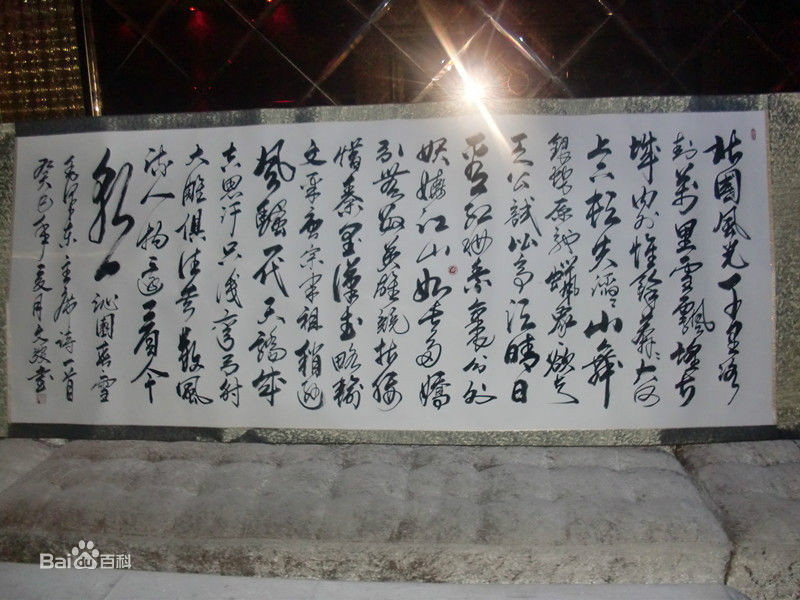 北國風光千里冰
封萬里雪飄望长
城内外惟餘莽莽大河
上下顿失滔滔山舞
銀蛇原驰蠟象欲与
天公試比高须晴日
看红妆素裹分外
妖娆江山如此多嬌
引無數英雄競折腰
惜秦皇漢武略輸
文采唐宗宋祖稍逊
風騷一代天驕成
吉思汗只識彎弓射
大雕俱往矣數風
流人物還看今
朝 沁園春雪
毛澤东主席诗一首
癸巳年夏月文书
Baidu百科